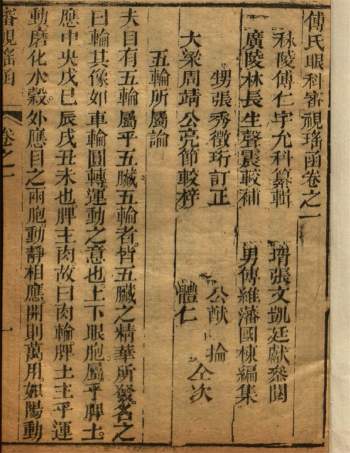 傅氏眼科審視瑤函卷之一
秣陵傅仁宇允科纂輯 壻張文凱廷獻參閱
廣陵林長生聲震較補 男傅維藩國棟編集
甥張秀徵珩訂正 公猷 掄 仝次
大梁周靖公亮節較梓 體仁
五輪所屬論
夫目有五輪屬乎五臟五輪者皆五臟之精華所發名之
曰輪其像如車輪圓轉運動之意也上下眼胞屬乎脾土
應中央戊巳辰戌丑未也脾主肉故曰肉輪脾土主乎運
動磨化水穀外應目之兩胞動靜相應開則萬用如陽動
審視瑤函 卷之一 一